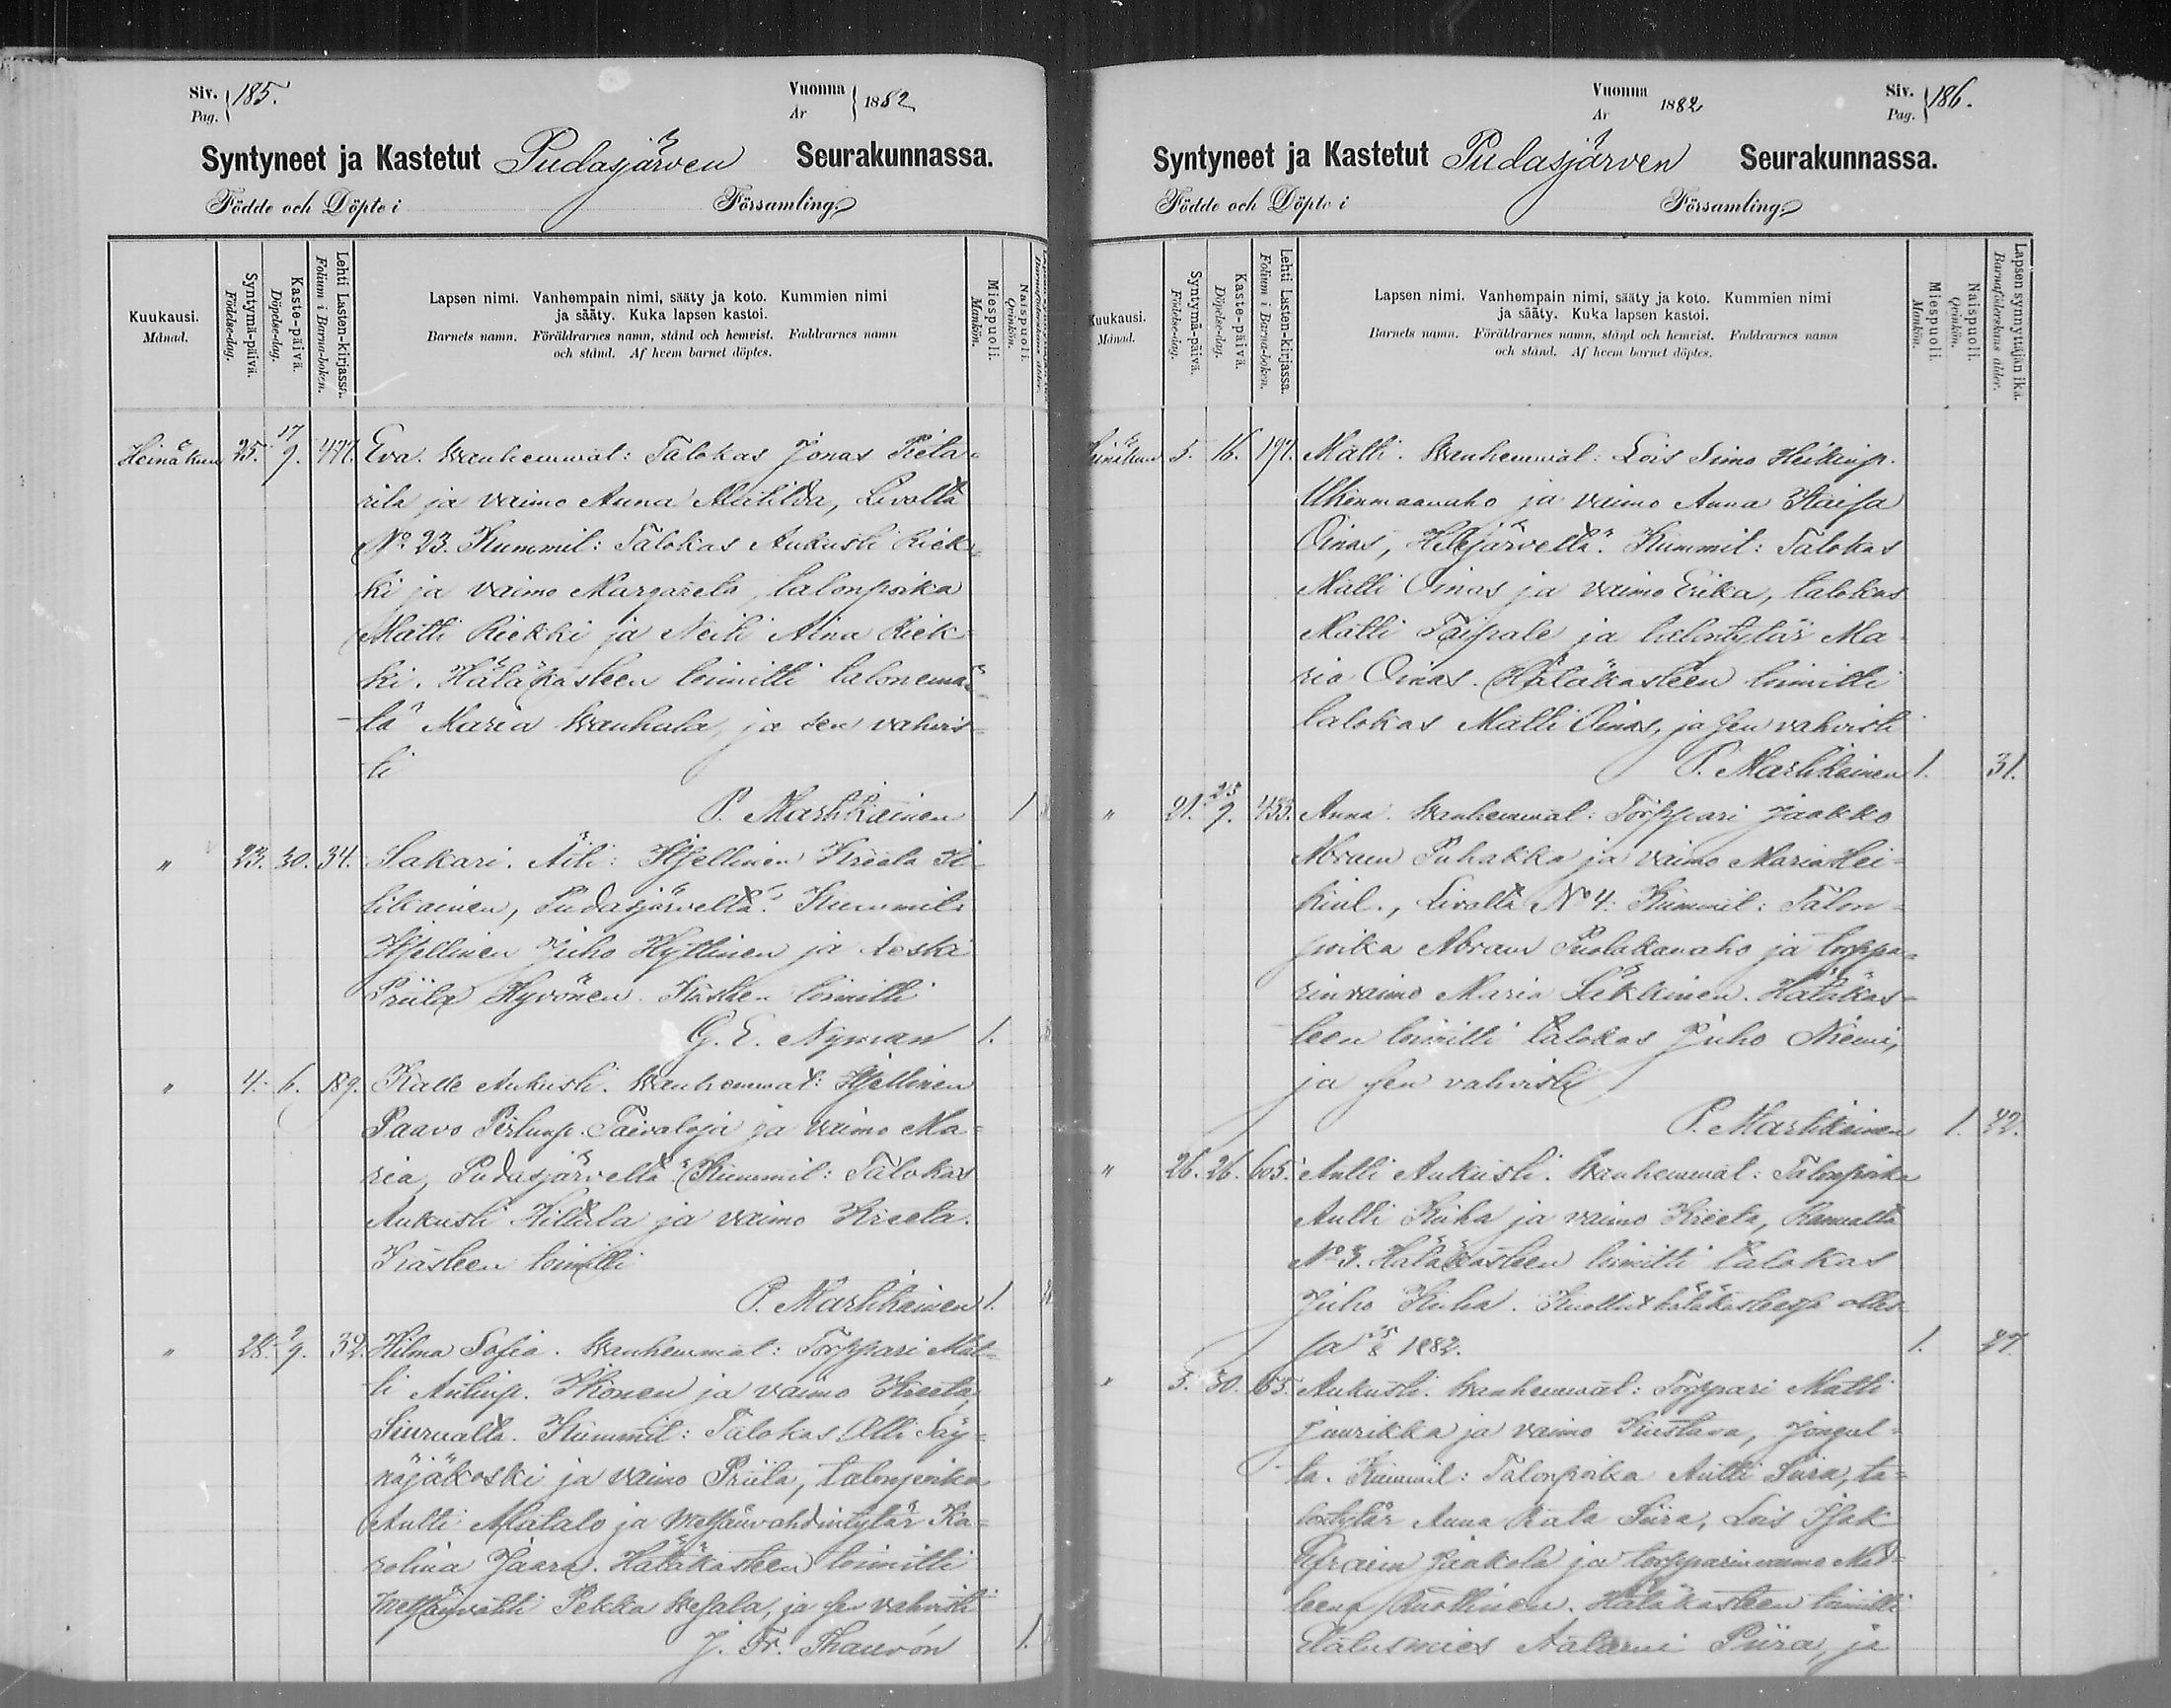 Siv. 185.
Pag.
Vuonna 1882
År
Syntyneet ja Kastetut Pudasjärven Seurakunnassa.
Födde och Döpte i Församling
Kuukausi.
Månad.
Syntymä-päivä.
Födelse-dag.
Kaste-päivä.
Döpelse-dag.
Lehti Lasten-kirjassa.
Folium i Barna-boken.
Lapsen nimi. Vanhempain nimi, sääty ja koto. Kummien nimi
ja sääty. Kuka lapsen kastoi.
Barnets namn. Föräldrarnes namn, stånd och hemvist. Faddrarnes namn
och stånd. Af hvem barnet döptes.
Miespuoli.
Mankön.
Naispuoli.
Qvinkön.
Heinäkuu 25. 17/9. 477. Eva. Wanhemmat: Talokas Jonas Pieta-
rila ja vaimo Anna Matilda, Livolta
No 23. Kummit: Talokas Aukusti Riek-
ki ja vaimo Margareta, talonpoika
Matti Riekki ja Neiti Alina Riek-
ki. Hätäkasteen toimitti talonemän-
tä Maria Wanhala, ja sen vahvis-
ti
P. Martikainen 1
" 23. 30. 34. Sakari. Äiti: Itsellinen Kreeta
Pudasjärveltä. Kummit:
Itsellinen Juho Hyttinen ja leski
Priita Hyvönen. Kasteen toimitti
G. E. Nyman 1.
" 4. 6. 189. Kalle Aukusti. Wanhemmat: Itsellinen
Paavo Taivaloja ja vaimo Ma-
ria, Pudasjärveltä. Kummit: Talokas
Aukusti Hiltula ja vaimo Kreeta.
Kasteen toimitti
P. Martikainen 1.
" 28. 2/9. 32. Hilma Sofia. Wanhemmat: Torppari Mat-
ti Antinp. Ikonen ja vaimo Kreeta,
Siurualta. Kummit: Talokas Olli Säy-
näjäkoski ja vaimo Priita, talonpoika
Antti Matalo ja Metsänvahdintytär Ka-
rolina Jaara. Hätäkasteen toimitti
Metsänvahti Pekka Wesala, ja sen vahvisti
J. Fr. Thauvón 1.
Vuonna 1882
År
Siv. 186.
Pag.
Syntyneet ja Kastetut Pudasjärven Seurakunnassa.
Födde och Döpte i Församling
Kuukausi.
Månad.
Syntymä-päivä.
Födelse-dag.
Kaste-päivä.
Döpelse-dag.
Lehti Lasten-kirjassa.
Folium i Barna-boken.
Lapsen nimi. Vanhempain nimi, sääty ja koto. Kummien nimi
ja sääty. Kuka lapsen kastoi.
Barnets namn. Föräldrarnes namn, stånd och hemvist. Faddrarnes namn
och stånd. Af hvem barnet döptes.
Miespuoli.
Mankön.
Naispuoli.
Qvinkön.
Lapsen synnyttäjän ikä.
Barnaföderskans ålder.
Heinäkuu 5. 16. 197. Matti. Wanhemmat: Lois Simo Heikinp.
ja vaimo Anna Kaisa
Oinas, Hetejärveltä. Kummit: Talokas
Matti Oinas ja vaimo Erika, talokas
Matti Taipale ja talontytär Ma-
ria Oinas. Hätäkasteen toimitti
talokas Matti Oinas, ja sen vahvisti
P. Martikainen 1. 31.
" 21. 25/9. 433. Anna. Wanhemmat: Torppari Jaakko
Abram Puhakka ja vaimo Maria Hei-
kint., Livolta No 4. Kummit: Talon-
poika Abram Puolakanaho ja torppa-
rinvaimo Maria Säkkinen. Hätäkas-
teen toimitti talokas Juho Niemi,
ja sen vahvisti
P. Martikainen 1. 42.
" 26. 26. 605. Antti Aukusti. Wanhemmat: Talonpoika
Antti Kuha ja vaimo Kreeta, Ranualta
No 3. Hätäkasteen toimitti talokas
Juho Kuha. Kuollut hätäkasteessa olles-
sa 25/8 1882. 1. 27.
" 5. 30. 65. Aukusti. Wanhemmat: Torppari Matti
Juurikka ja vaimo Kustava, Jongul-
ta. Kummit: Talonpoika Antti Siira, ta-
lontytär Anna Kaisa Siira, Lois Isak
Efraim Jaakola ja torpparinvaimo Mad-
leena Ruottinen. Hätäkasteen toimitti
Elatusmies Aatami Piira, ja